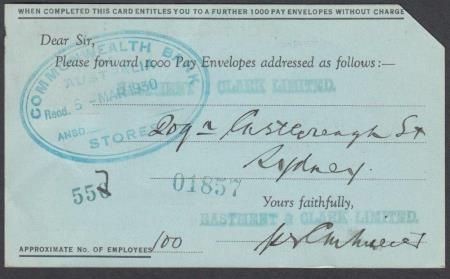 WHEN COMPLETED THIS CARD ENTITLES YOU TO A FURTHER 1000 PAY ENVELOPES WITHOUT CHARGE
Dear Sir,
Please forward 1000 Pay Envelopes addressed as follows:—
COMMONWEALTH BANK
AUSTRALIA
Recd. 6 - MAR 1930
ANSD.
STORES
EASTMENT & CLARK LIMITED.
209 Castlereagh St
Sydney.
01857
Yours faithfully,
EASTMENT & CLARK LIMITED.
APPROXIMATE NO. OF EMPLOYEES 100